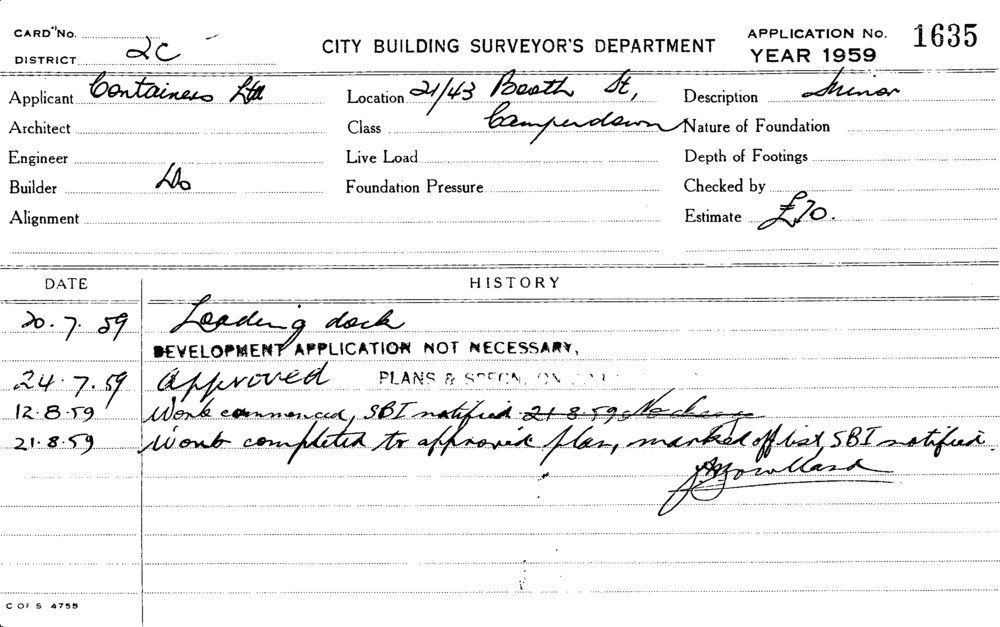 CARD No.
DISTRICT 2C
CITY BUILDING SURVEYOR'S DEPARTMENT
APPLICATION No. 1635
YEAR 1959
Applicant Containers Ltd
Location 21/43 Booth St,
Description Minor
Architect
Class Camperdown
Nature of Foundation
Engineer
Live Load
Depth of Footings
Builder Do
Foundation Pressure
Checked by
Alignment
Estimate £70.
DATE HISTORY
20.7.59 Loading dock
DEVELOPMENT APPLICATION NOT NECESSARY,
24.7.59 Approved PLANS & SPECN. ON
12.8.59 Work commenced, SBI notified 21 8.59 No charge
21.8.59 Work completed to approved plan, marked off list, SBI notified
C OF S 475B